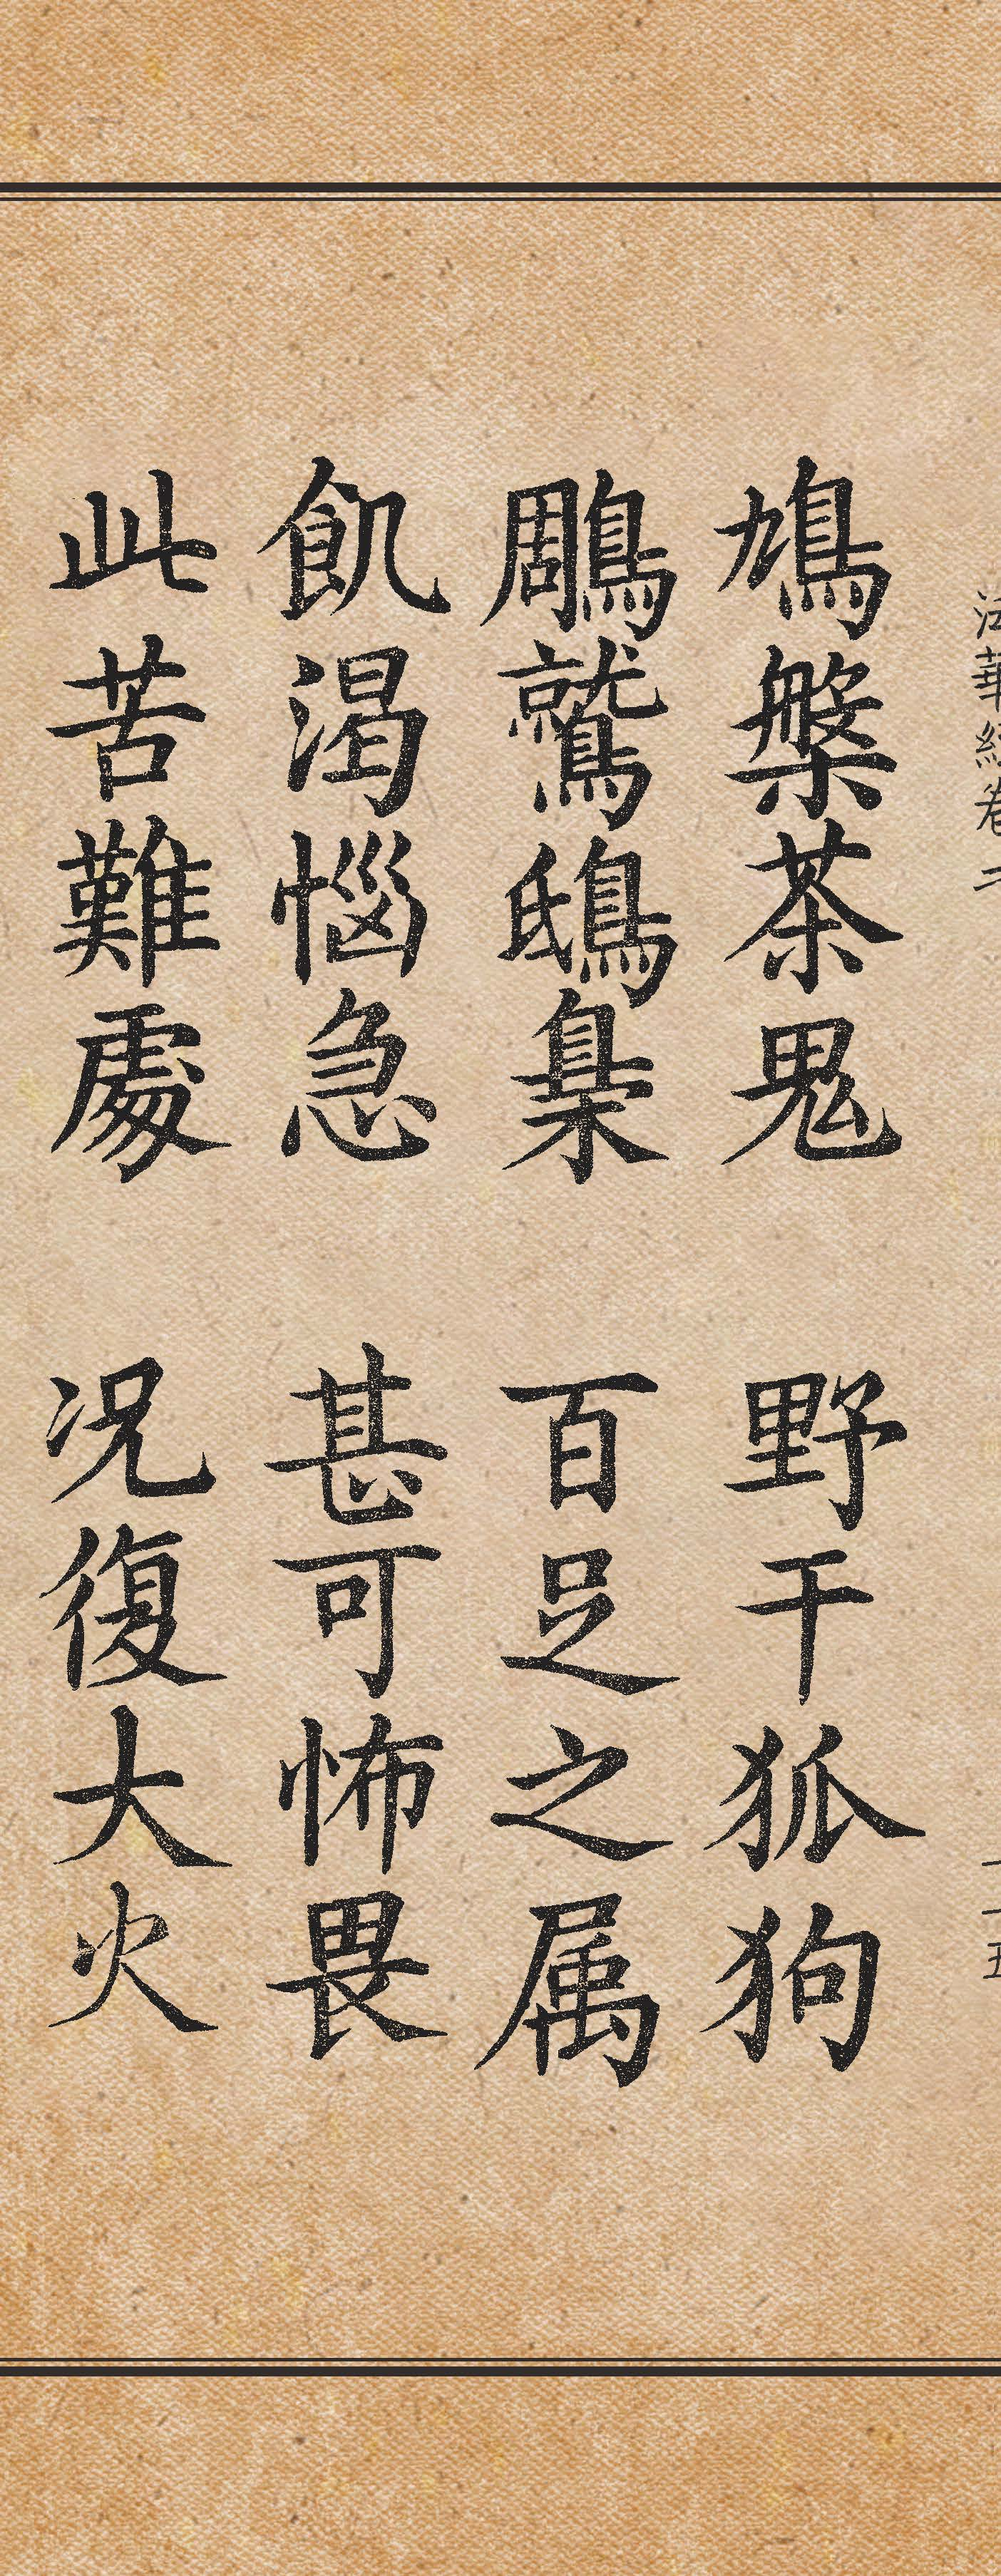 法華經卷二 十五
鳩槃茶鬼 野干狐狗
鵰鷲鴟梟 百足之属
飢渴惱急 甚可怖畏
此苦難處 况復大火